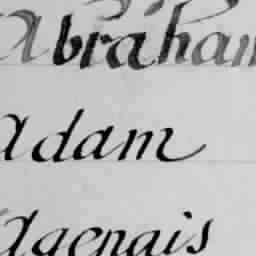 Abraham
Adam
Agenais